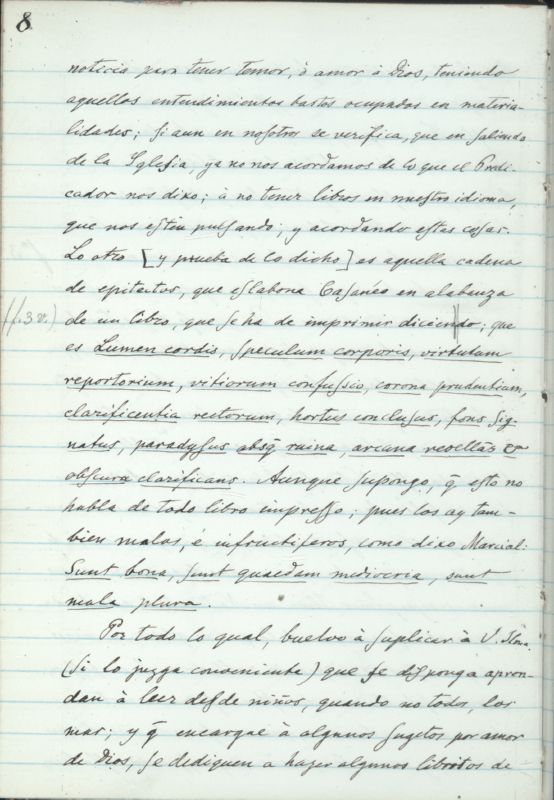 8
noticia para tener temor, ò amor à Dios, teniendo
aquellos entendimientos bastos ocupados en materia-
lidades; si aun en nosotros se verifica, que en saliendo
de la Iglesia, ya no nos acordamos de lo que el Predi-
cador nos dixo; à no tener libros en nuestro idioma,
que nos estèn pulsando, y acordando estas cosas.
Lo otro [y prueba de lo dicho] es aquella cadena
de epitectos, que eslabona Casanèo en alabanza
(f. 3 v.) de un libro, que se ha de imprimir diciendo; que
es Lumen cordis, speculum corporis, virtutum
reportorium, vitiorum confussio, corona prudentium,
clarificentia rectorum, hortus conclusus, fons sig-
natus, paradysus absq̃ ruina, arcana resellãs &
obscura clarificans. Aunque supongo, q̃ esto no
habla de todo libro impresso; pues los ay tam-
bien malos, è infructiferos, como dixo Marcial:
Sunt bona, sunt quaedam mediocria, sunt
mala plura.
Por todo lo qual, buelvo à suplicar à V. Ilma
(si lo juzga conveniente) que se disponga apren-
dan à leer desde niños, quando no todos, los
mas; y q̃ encargue à algunos sugetos por amor
de Dios, se dediquen a hazer algunos libritos de